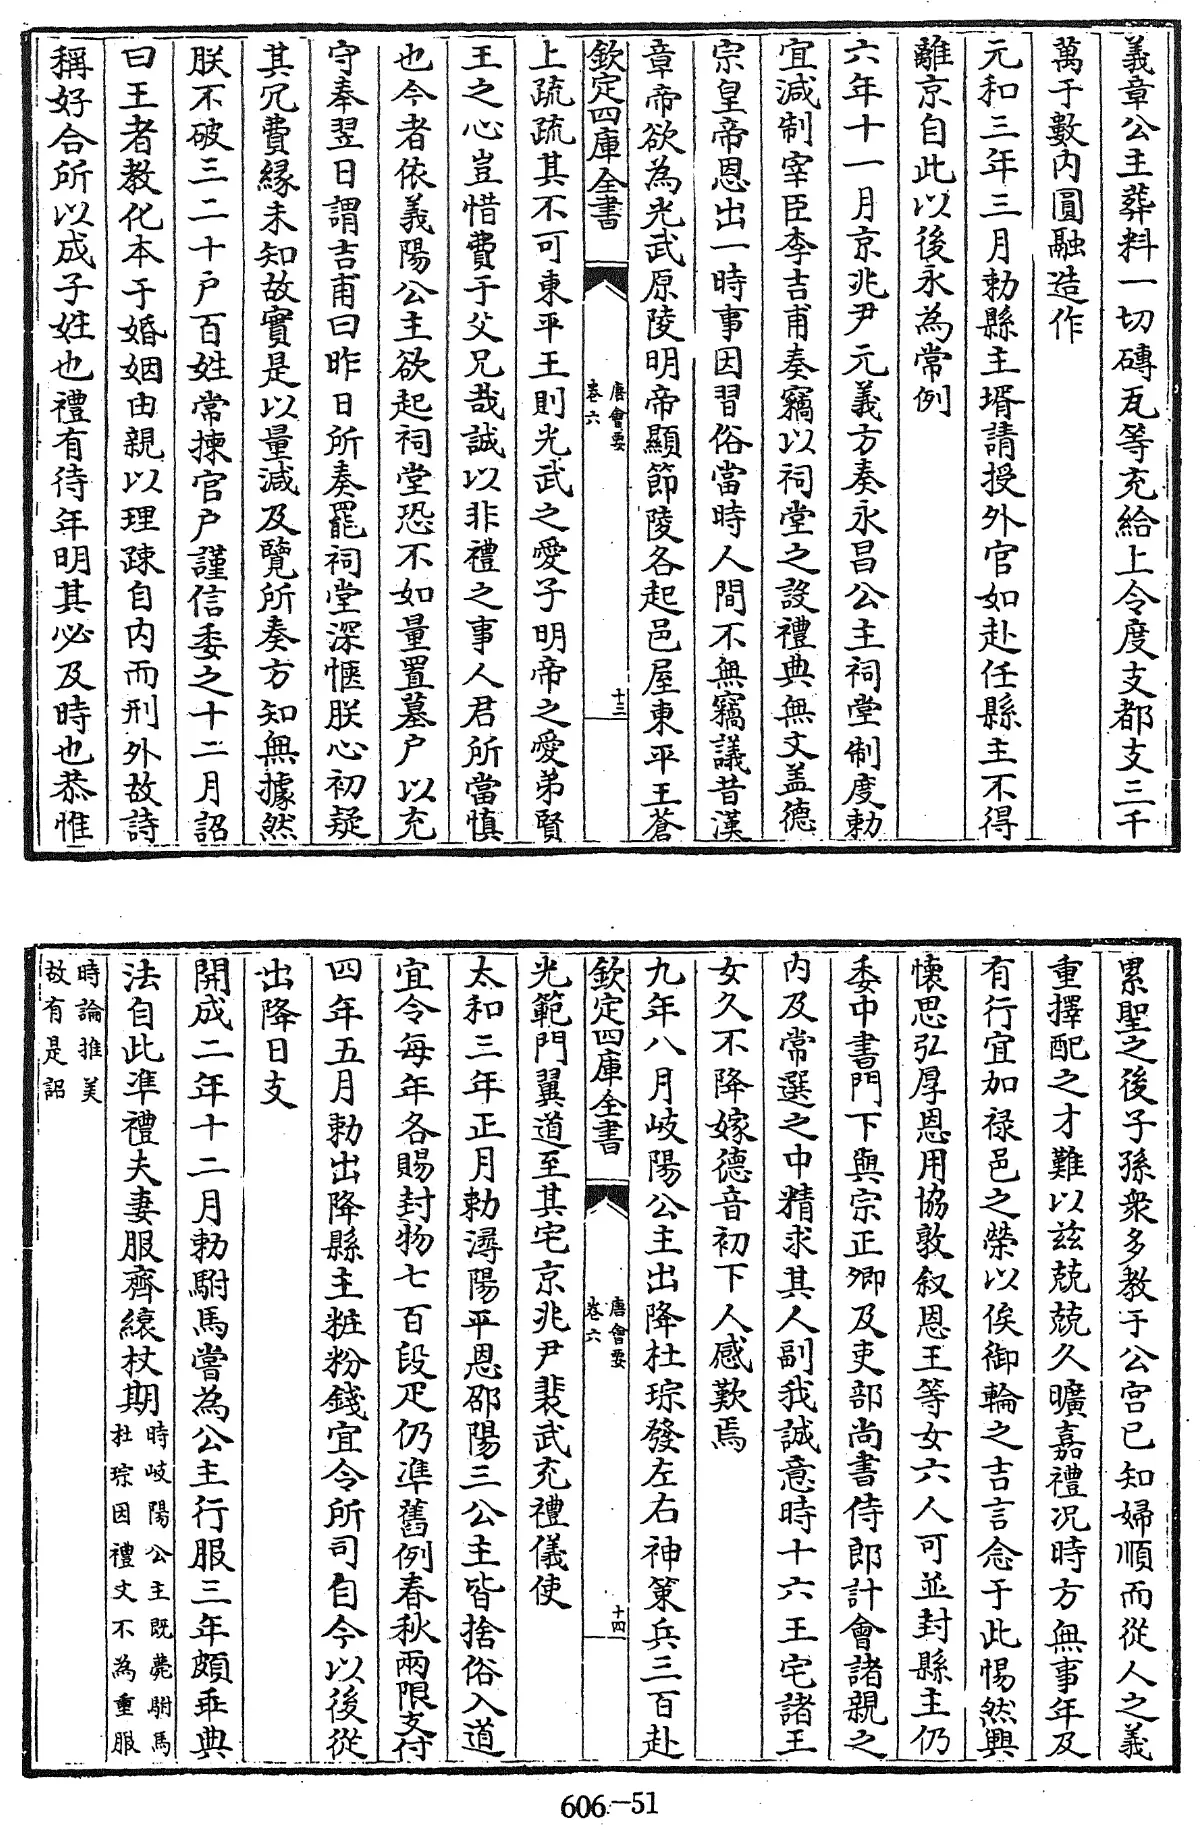 義章公主葬料一切磚瓦等充給上令度支都支三千
萬于數內圓融造作
元和三年三月勅縣主壻請授外官如赴任縣主不得
離京自此以後永為常例
六年十一月京兆尹元義方奏永昌公主祠堂制度勅
宜減制宰臣李吉甫奏竊以祠堂之設禮典無文盖德
宗皇帝恩出一時事因習俗當時人間不無竊議昔漢
章帝欲為光武原陵明帝顯節陵各起邑屋東平王蒼
欽定四庫全書
唐會要
卷六
十三
上疏疏其不可東平王則光武之愛子明帝之愛弟賢
王之心豈惜費于父兄哉誠以非禮之事人君所當慎
也今者依義陽公主欲起祠堂恐不如量置墓户以充
守奉翌日謂吉甫曰昨日所奏罷祠堂深愜朕心初疑
其冗費緣未知故實是以量減及覽所奏方知無據然
朕不破三二十户百姓常揀官户謹信委之十二月詔
曰王者教化本于婚姻由親以理疎自內而刑外故詩
稱好合所以成子姓也禮有待年明其必及時也恭惟
累聖之後子孫衆多教于公宫已知婦順而從人之義
重擇配之才難以兹兢兢久曠嘉禮况時方無事年及
有行宜加禄邑之榮以俟御輪之吉言念于此惕然興
懷思弘厚恩用協敦叙恩王等女六人可並封縣主仍
委中書門下與宗正卿及吏部尚書侍郎計會諸親之
内及常選之中精求其人副我誠意時十六王宅諸王
女久不降嫁德音初下人人感歎焉
九年八月岐陽公主出降杜琮發左右神策兵三百赴
欽定四庫全書
唐會要
卷六
十四
光範門翼道至其宅京兆尹裴武充禮儀使
太和三年正月勅潯陽平恩邵陽三公主皆捨俗入道
宜令每年各賜封物七百段疋仍準舊例春秋兩限支付
四年五月勅出降縣主粧粉錢宜令所司自今以後從
出降日支
開成二年十二月勅駙馬嘗為公主行服三年頗乖典
法自此準禮夫妻服齊縗杖期
時岐陽公主既薨駙馬
杜琮因禮文不為重服
時論推美
故有是詔
606-51